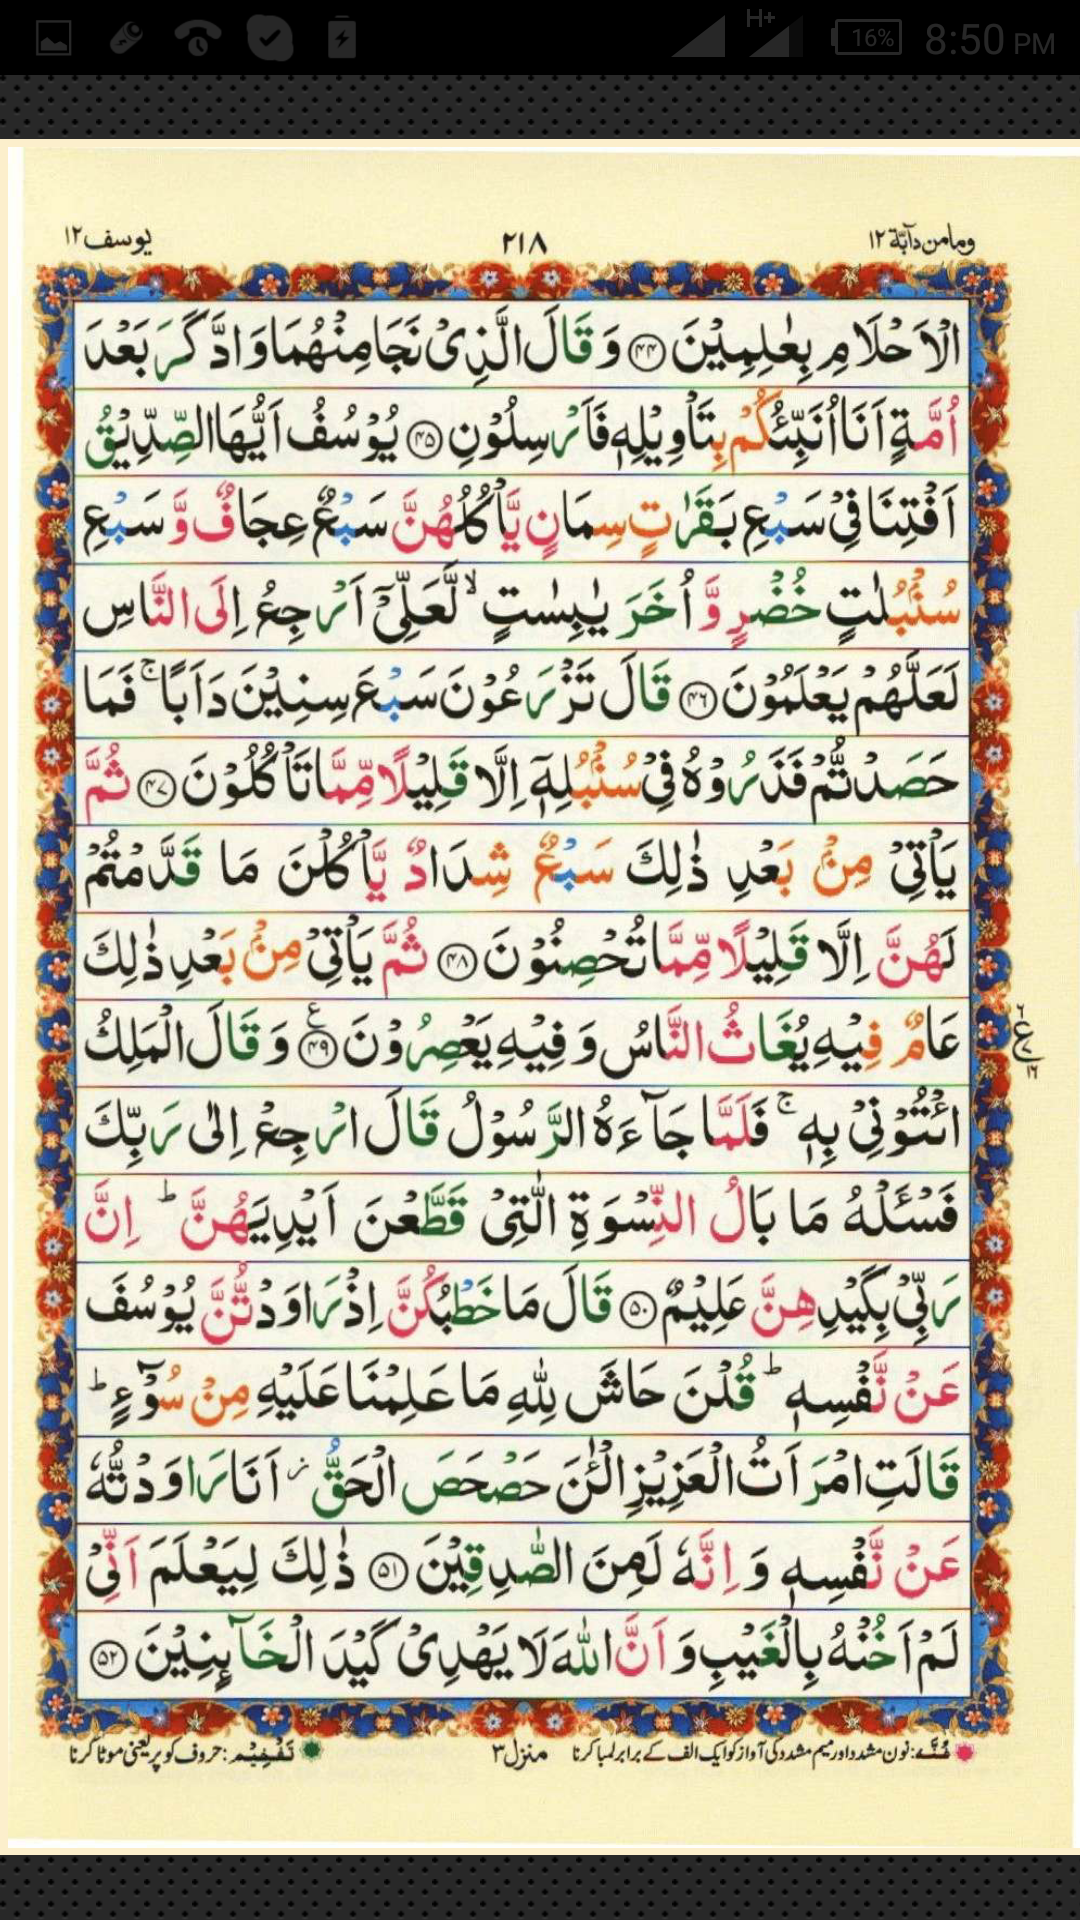 H+ 16% 8:50 PM
ومامن دآبّة ١٢ ٢١٨ یوسف ١٢
الْاَحْلَامِ بِعٰلِمِیْنَ ﴿۴۴﴾ وَ قَالَ الَّذِیْ نَجَا مِنْهُمَا وَ ادَّكَرَ بَعْدَ
اُمَّةٍ اَنَا اُنَبِّئُكُمْ بِتَاْوِیْلِهٖ فَاَرْسِلُوْنِ ﴿۴۵﴾ یُوْسُفُ اَیُّهَا الصِّدِّیْقُ
اَفْتِنَا فِیْ سَبْعِ بَقَرٰتٍ سِمَانٍ یَّاْكُلُهُنَّ سَبْعٌ عِجَافٌ وَّ سَبْعِ
سُنْۢبُلٰتٍ خُضْرٍ وَّ اُخَرَ یٰبِسٰتٍ ۙ لَّعَلِّیْۤ اَرْجِعُ اِلَی النَّاسِ
لَعَلَّهُمْ یَعْلَمُوْنَ ﴿۴۶﴾ قَالَ تَزْرَعُوْنَ سَبْعَ سِنِیْنَ دَاَبًا ۚ فَمَا
حَصَدْتُّمْ فَذَرُوْهُ فِیْ سُنْۢبُلِهٖۤ اِلَّا قَلِیْلًا مِّمَّا تَاْكُلُوْنَ ﴿۴۷﴾ ثُمَّ
یَاْتِیْ مِنْۢ بَعْدِ ذٰلِكَ سَبْعٌ شِدَادٌ یَّاْكُلْنَ مَا قَدَّمْتُمْ
لَهُنَّ اِلَّا قَلِیْلًا مِّمَّا تُحْصِنُوْنَ ﴿۴۸﴾ ثُمَّ یَاْتِیْ مِنْۢ بَعْدِ ذٰلِكَ
عَامٌ فِیْهِ یُغَاثُ النَّاسُ وَ فِیْهِ یَعْصِرُوْنَ ﴿۴۹﴾ ع وَ قَالَ الْمَلِكُ
ائْتُوْنِیْ بِهٖ ۚ فَلَمَّا جَآءَهُ الرَّسُوْلُ قَالَ ارْجِعْ اِلٰی رَبِّكَ
فَسْـَٔلْهُ مَا بَالُ النِّسْوَةِ الّٰتِیْ قَطَّعْنَ اَیْدِیَهُنَّ ؕ اِنَّ
رَبِّیْ بِكَیْدِهِنَّ عَلِیْمٌ ﴿۵۰﴾ قَالَ مَا خَطْبُكُنَّ اِذْ رَاوَدْتُّنَّ یُوْسُفَ
عَنْ نَّفْسِهٖ ؕ قُلْنَ حَاشَ لِلّٰهِ مَا عَلِمْنَا عَلَیْهِ مِنْ سُوْٓءٍ ؕ
قَالَتِ امْرَاَتُ الْعَزِیْزِ الْـٰٔنَ حَصْحَصَ الْحَقُّ ؗ اَنَا رَاوَدْتُّهٗ
عَنْ نَّفْسِهٖ وَ اِنَّهٗ لَمِنَ الصّٰدِقِیْنَ ﴿۵۱﴾ ذٰلِكَ لِیَعْلَمَ اَنِّیْ
لَمْ اَخُنْهُ بِالْغَیْبِ وَ اَنَّ اللّٰهَ لَا یَهْدِیْ كَیْدَ الْخَآئِنِیْنَ ﴿۵۲﴾
غُنَّه: نون مشدد اور میم مشدد کی آواز کو ایک الف کے برابر لمبا کرنا منزل ٣ تَفْخِیْم: حروف کو پر یعنی موٹا کرنا